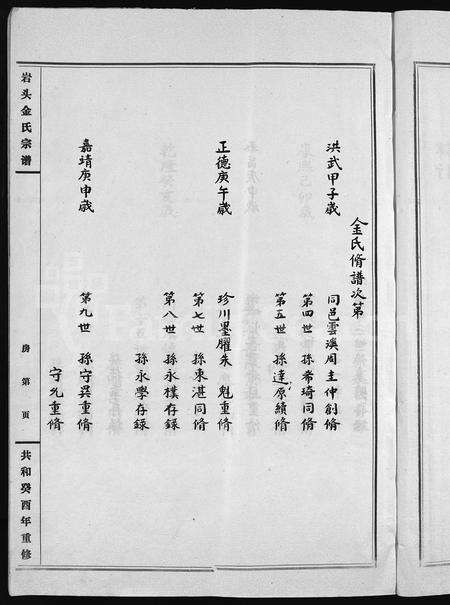 金氏脩譜次第
洪武甲子歲
同邑雲溪周圭仲創脩
第四世 孫希琦同脩
第五世 孫達原續脩
正德庚午歲
珍川墨臞朱 魁重脩
第七世 孫東湛同脩
第八世 孫永樸存録
孫永學存録
嘉靖庚申歲
第九世 孫守吳重脩
守允重脩
岩头金氏宗谱
房 第 页
共和癸酉年重修